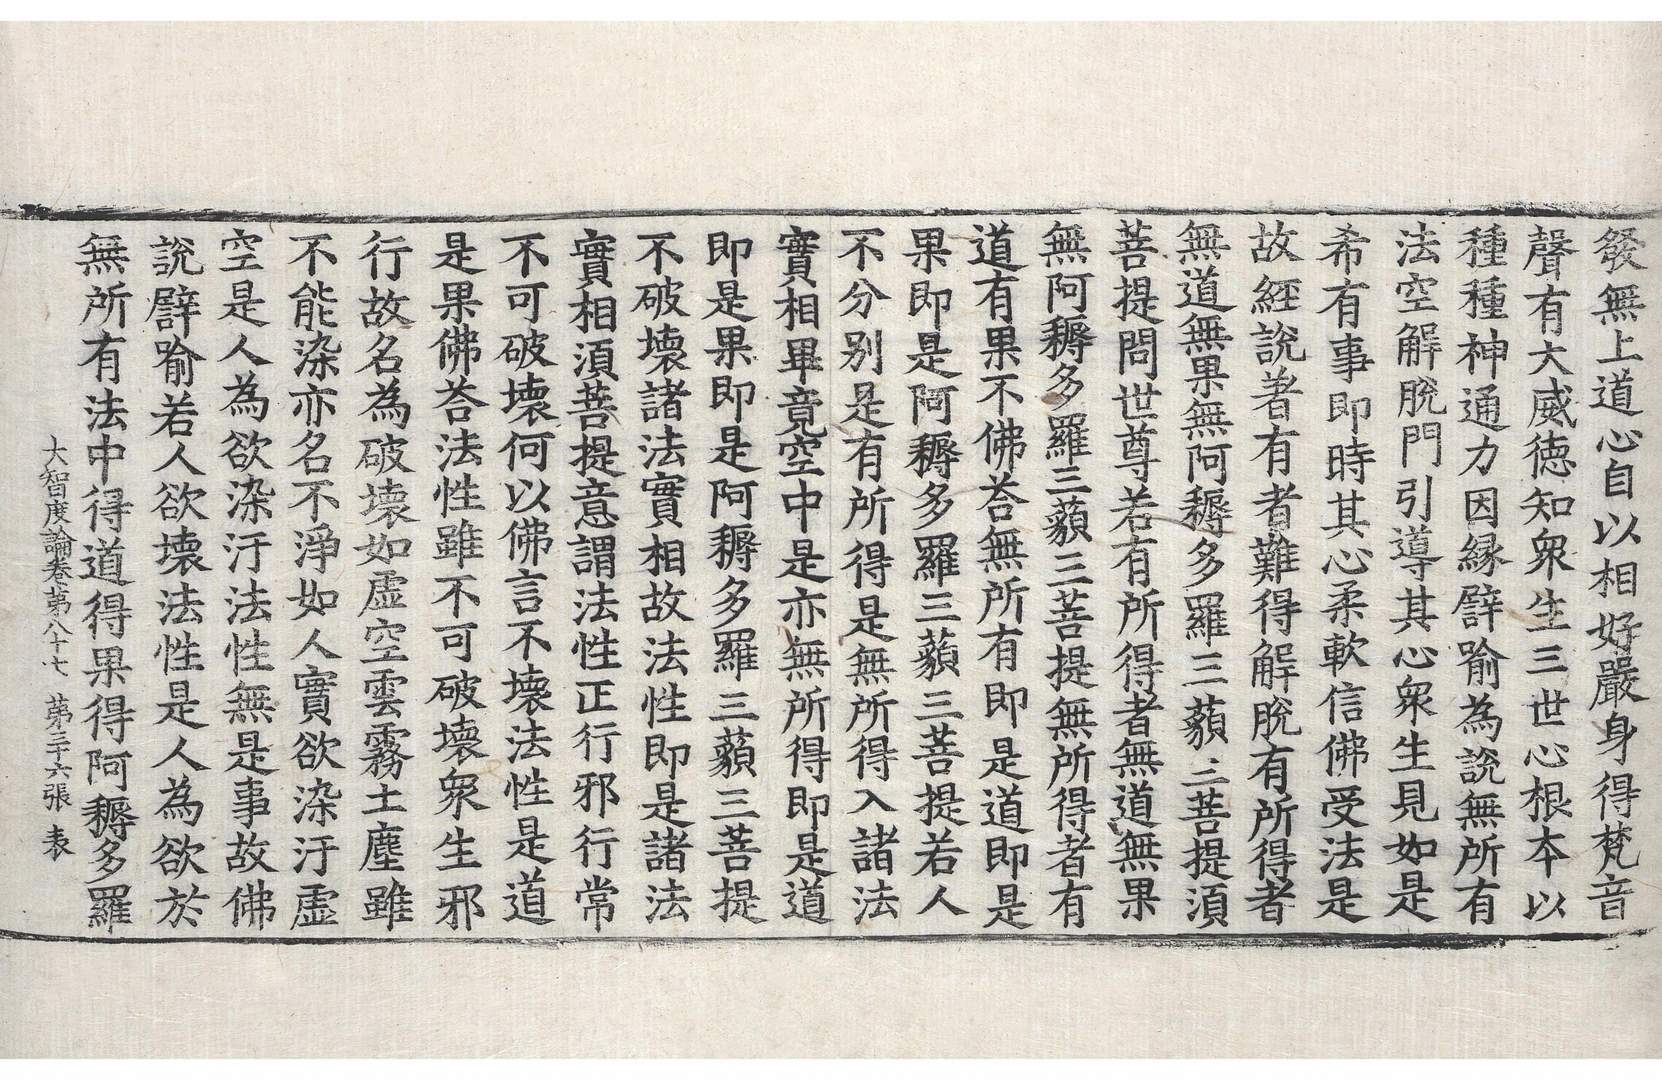 發無上道心自以相好嚴身得梵音
聲有大威德知衆生三世心根本以
種種神通力因縁譬喻為說無所有
法空解脫門引導其心衆生見如是
希有事即時其心柔軟信佛受法是
故經說著有者難得解脫有所得者
無道無果無阿耨多羅三藐三菩提湏
菩提問世尊若有所得者無道無果
無阿耨多羅三藐三菩提無所得者有
道有果不佛荅無所有即是道即是
果即是阿耨多羅三藐三菩提若人
不分別是有所得是無所得入諸法
實相畢竟空中是亦無所得即是道
即是果即是阿耨多羅三藐三菩提
不破壞諸法實相故法性即是諸法
實相湏菩提意謂法性正行邪行常
不可破壞何以佛言不壞法性是道
是果佛荅法性雖不可破壞衆生邪
行故名為破壞如虛空雲霧土塵雖
不能染亦名不淨如人實欲染汙虛
空是人為欲染汙法性無是事故佛
說譬喻若人欲壞法性是人為欲於
無所有法中得道得果得阿耨多羅
大智度論卷第八十七 第三十六張 表